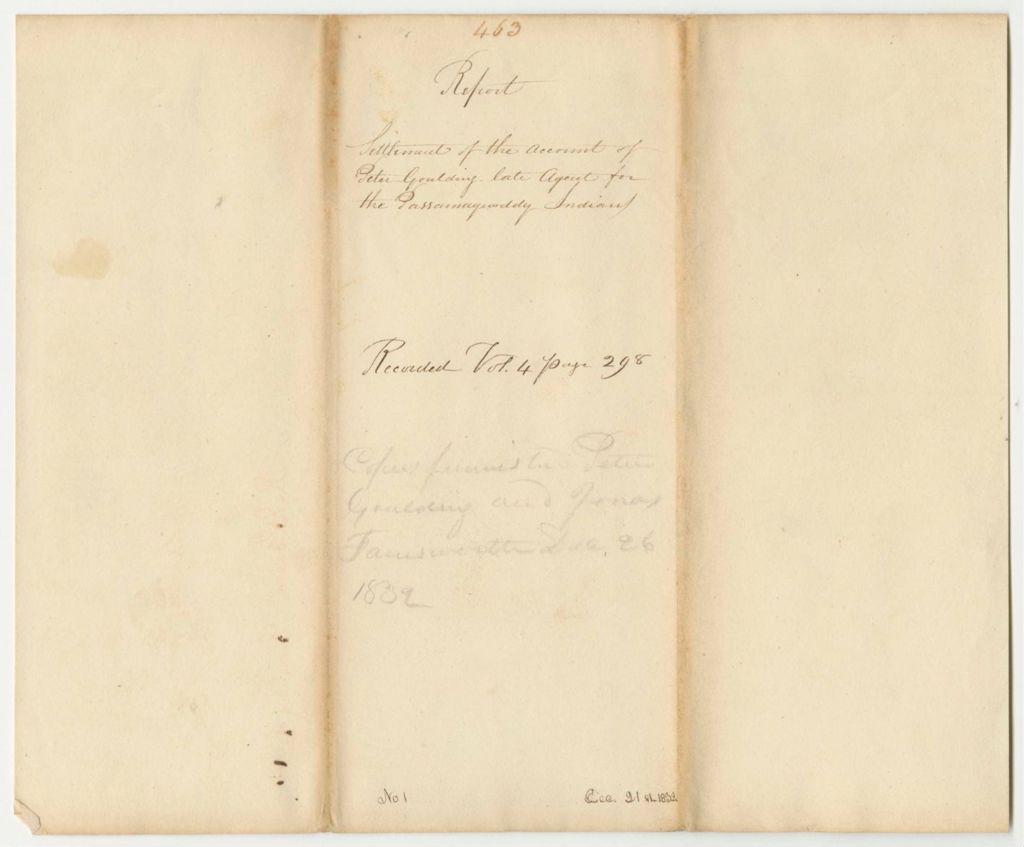 463
Report
Settlement of the account of
Peter Goulding late Agent for
the Passamaquoddy Indians
Recorded Vol. 4 page 298
Peter
Goulding and Jonas
Farnsworth Dec. 26
1832
No 1
Dec. 21st 1832